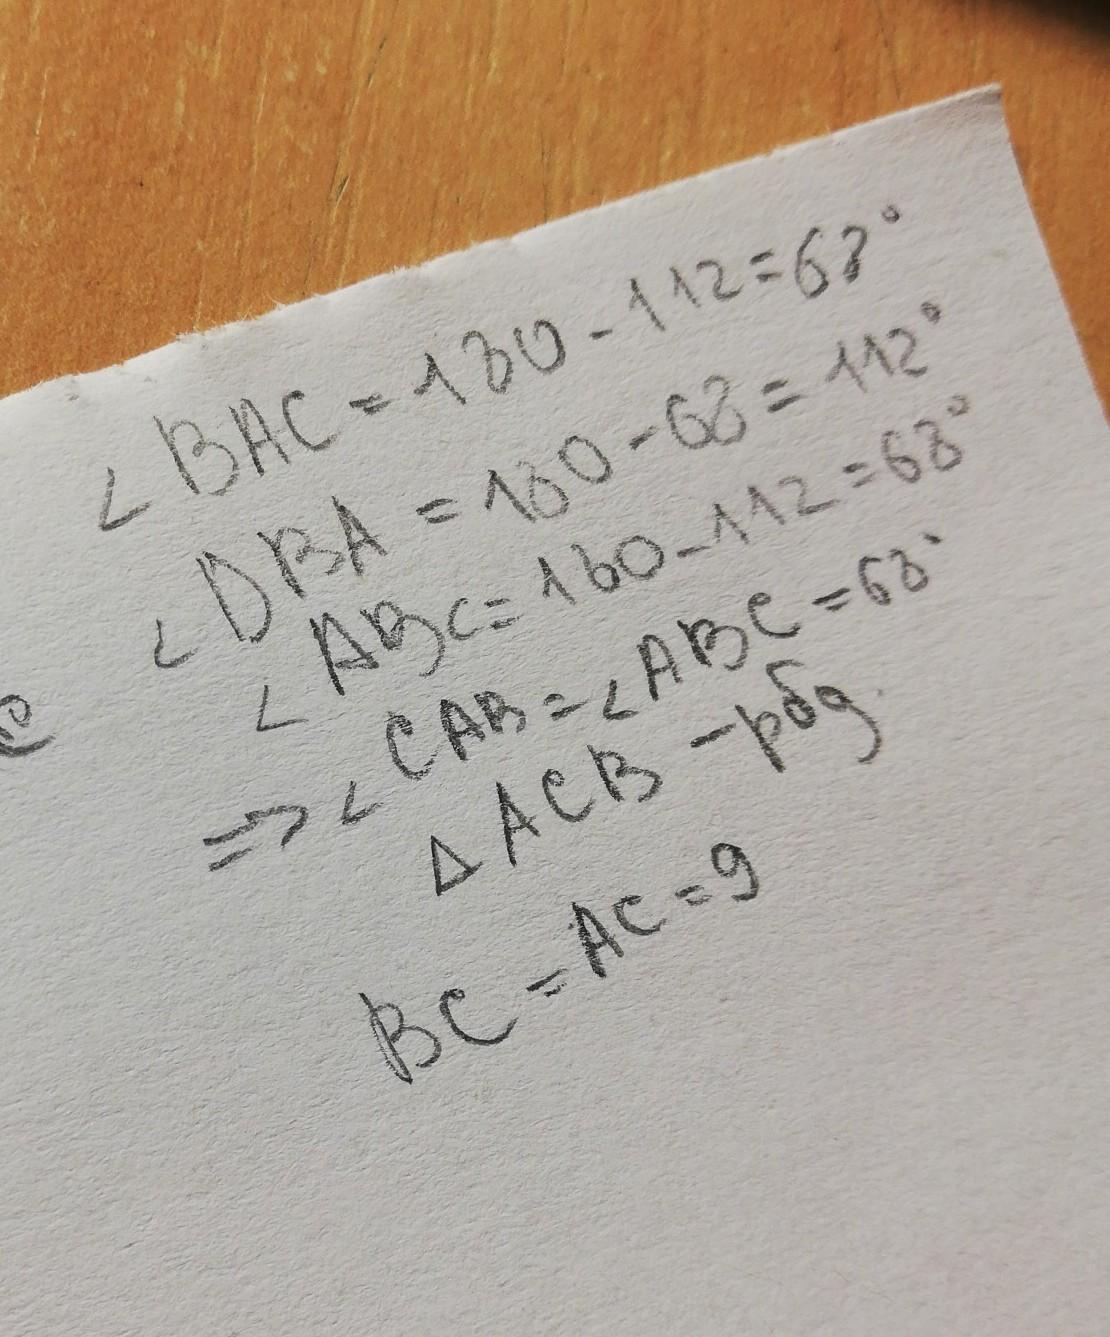 ∠BAC = 180 - 112 = 68°
∠DBA = 180 - 68 = 112°
∠ABC = 180 - 112 = 68°
⇒ ∠CAB = ∠ABC = 68°
Δ ACB - рбд.
BC = AC = 9